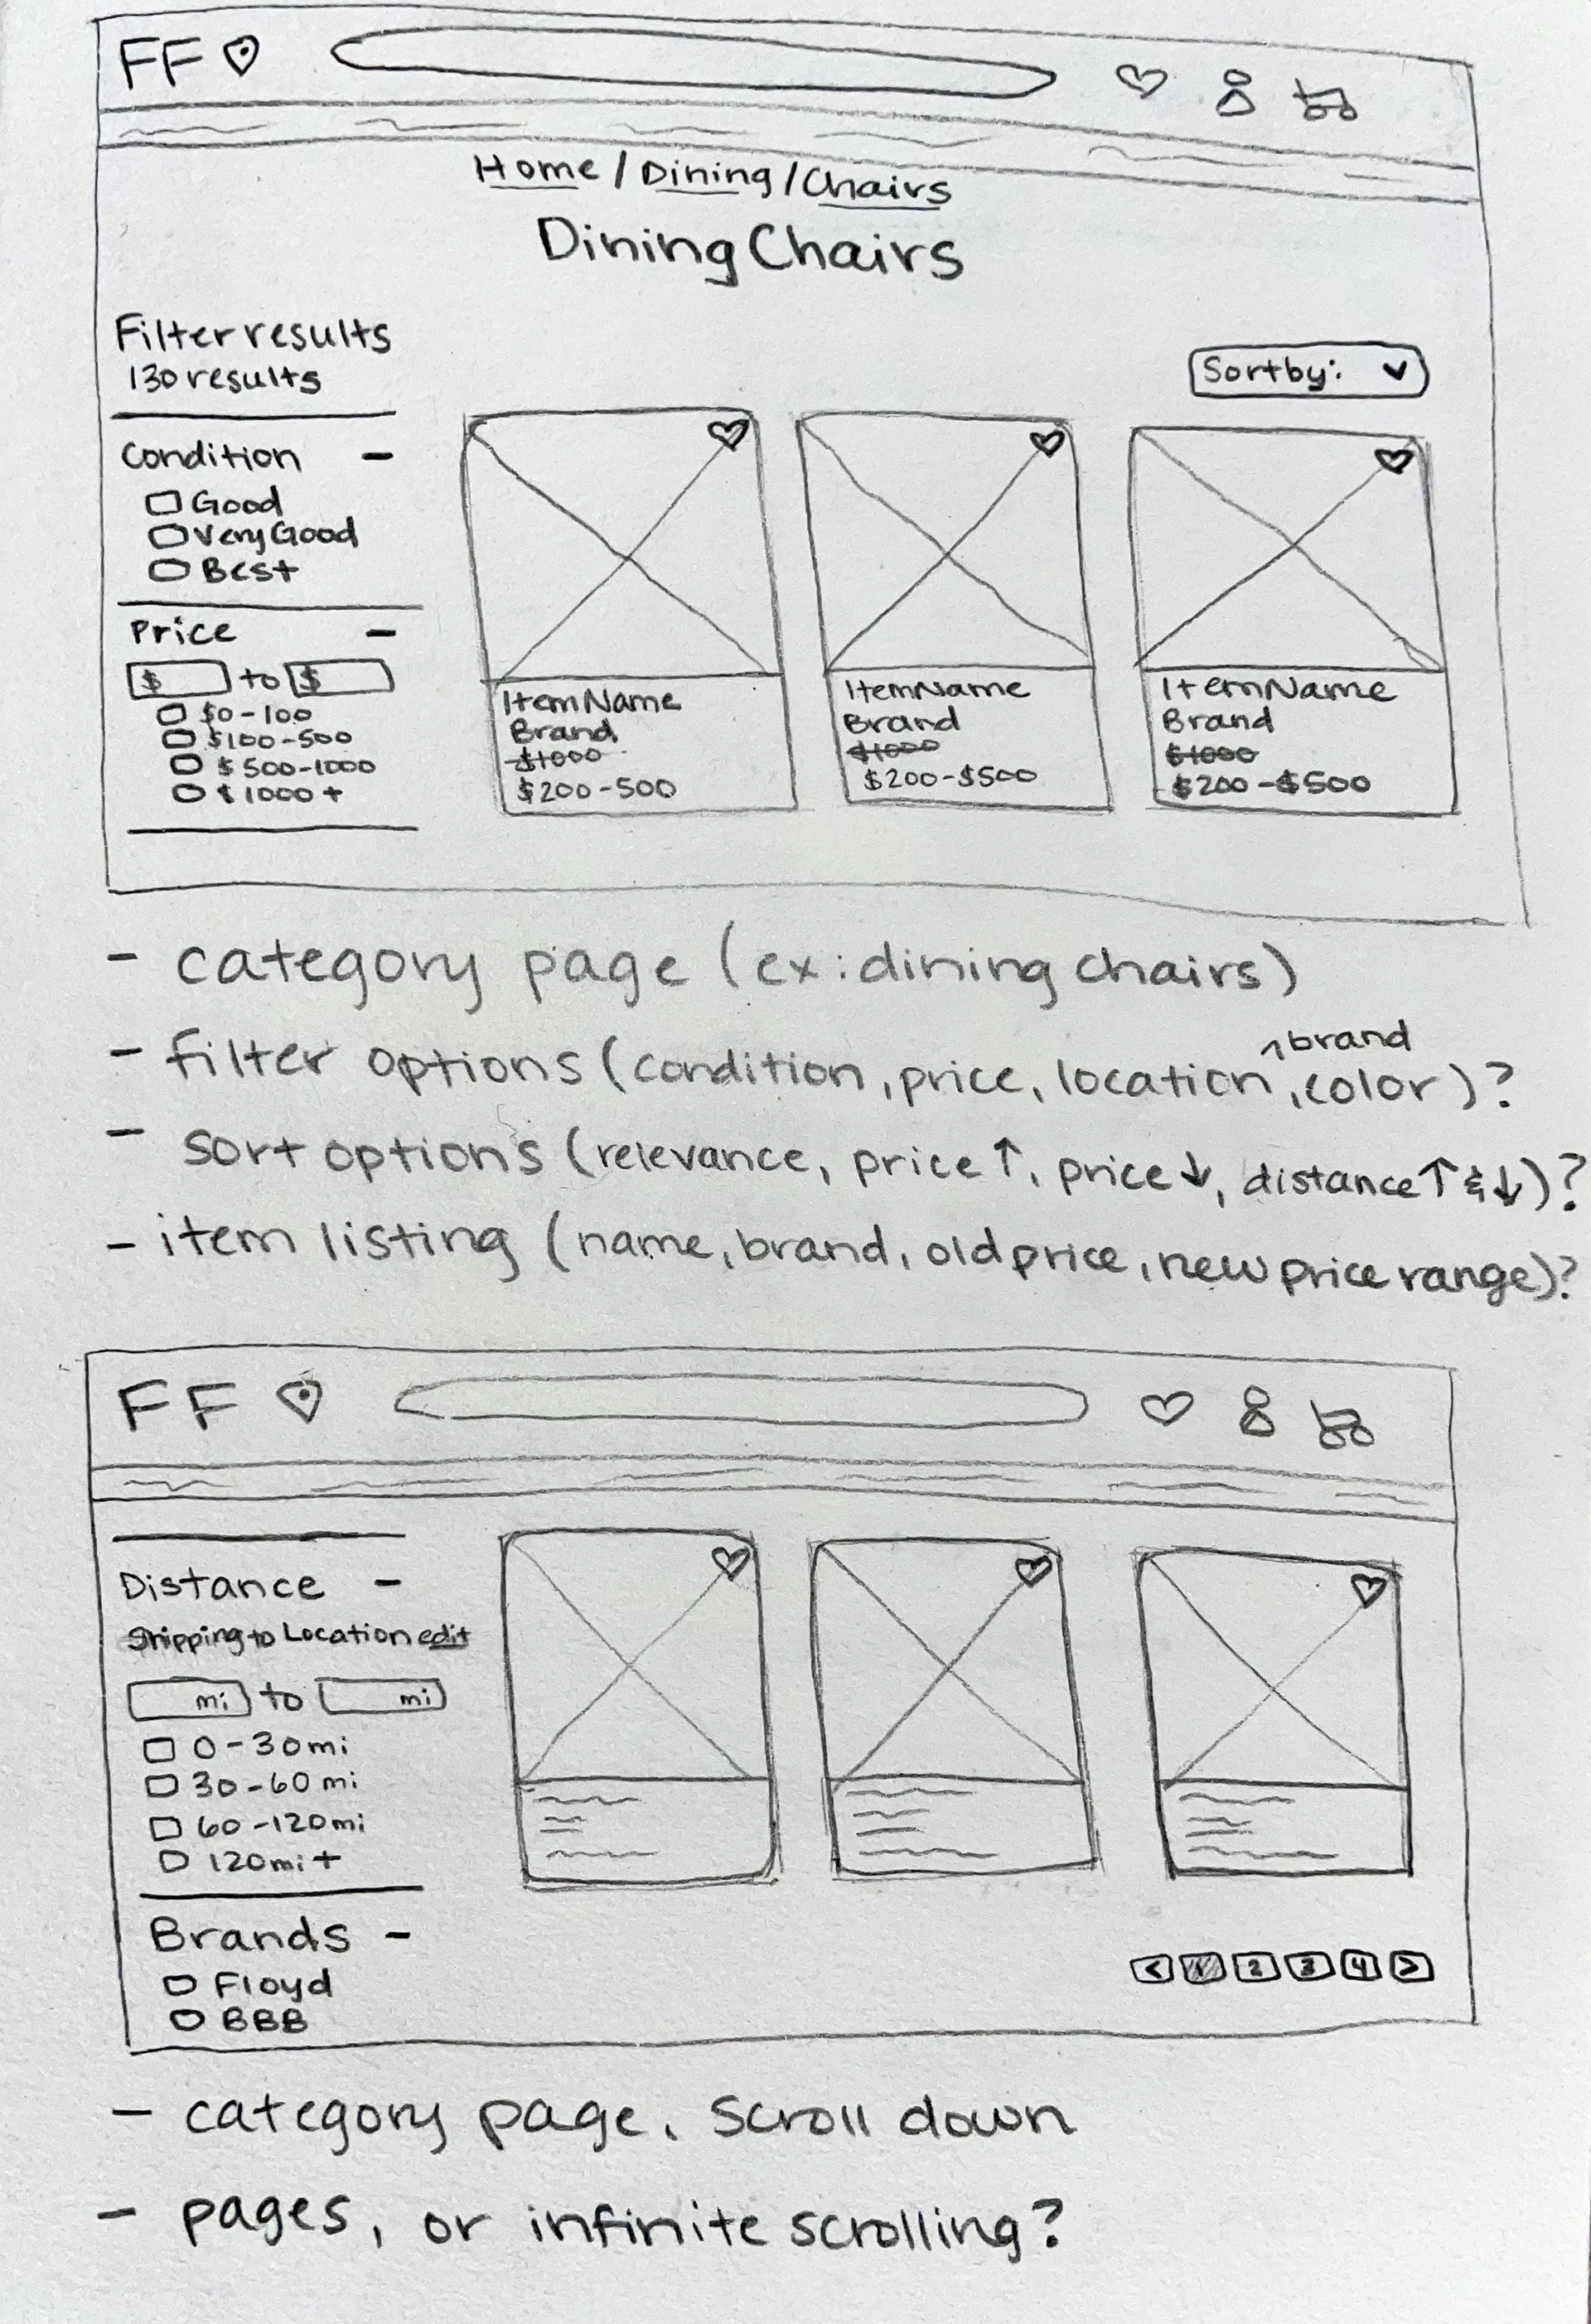 FF
Home / Dining / Chairs
Dining Chairs
Filter results
130 results
Sort by:
Condition -
Good
Very Good
Best
Price -
$ to $
$0-100
$100-500
$500-1000
$1000+
Item Name
Brand
$1000
$200-500
Item Name
Brand
$1000
$200-$500
Item Name
Brand
$1000
$200-$500
- category page (ex: dining chairs)
- filter options (condition, price, location ^brand, color)?
- sort options (relevance, price ↑, price ↓, distance ↑ & ↓)?
- item listing (name, brand, old price, new price range)?
FF
Distance -
Shipping to Location edit
mi to mi
0-30mi
30-60 mi
60-120mi
120mi+
Brands -
Floyd
BBB
< 1 2 3 4 >
- category page, scroll down
- pages, or infinite scrolling?